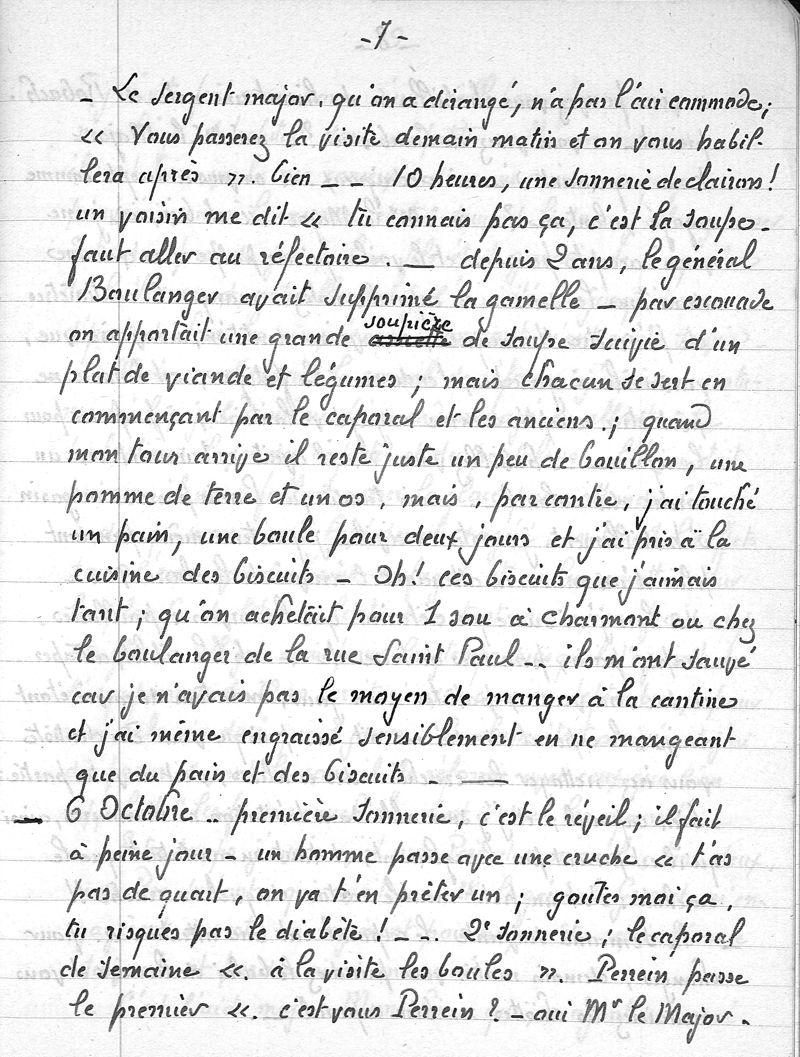 -7-
- Le sergent major, qu'on a dérangé, n'a pas l'air commode;
« Vous passerez la visite demain matin et on vous habil-
lera après ». bien _ _ 10 heures, une sonnerie de clairons!
un voisin me dit « tu connais pas ça, c'est la soupe.
faut aller au réfectoire. — depuis 2 ans, le général
Boulanger avait supprimé la gamelle _ par escouade
on apportait une grande soupière de soupe suivie d'un
plat de viande et légumes; mais chacun se sert en
commençant par le caporal et les anciens.; quand
mon tour arrive il reste juste un peu de bouillon, une
pomme de terre et un os, mais, par contre, j'ai touché
un pain, une boule pour deux jours et j'ai pris à la
cuisine des biscuits _ Oh! ces biscuits que j'aimais
tant; qu'on achetait pour 1 sou à Charmont ou chez
le boulanger de la rue Saint Paul.. ils m'ont sauvé
car je n'avais pas le moyen de manger à la cantine
et j'ai même engraissé sensiblement en ne mangeant
que du pain et des biscuits _ —
— 6 Octobre .. première sonnerie, c'est le réveil; il fait
à peine jour - un homme passe avec une cruche « t'as
pas de quart, on va t'en prêter un; goutes moi ça,
tu risques pas le diabète! _ _. 2e sonnerie; le caporal
de semaine «. à la visite les boules ». Perrein passe
le premier «. c'est vous Perrein? - oui Mr le Major.